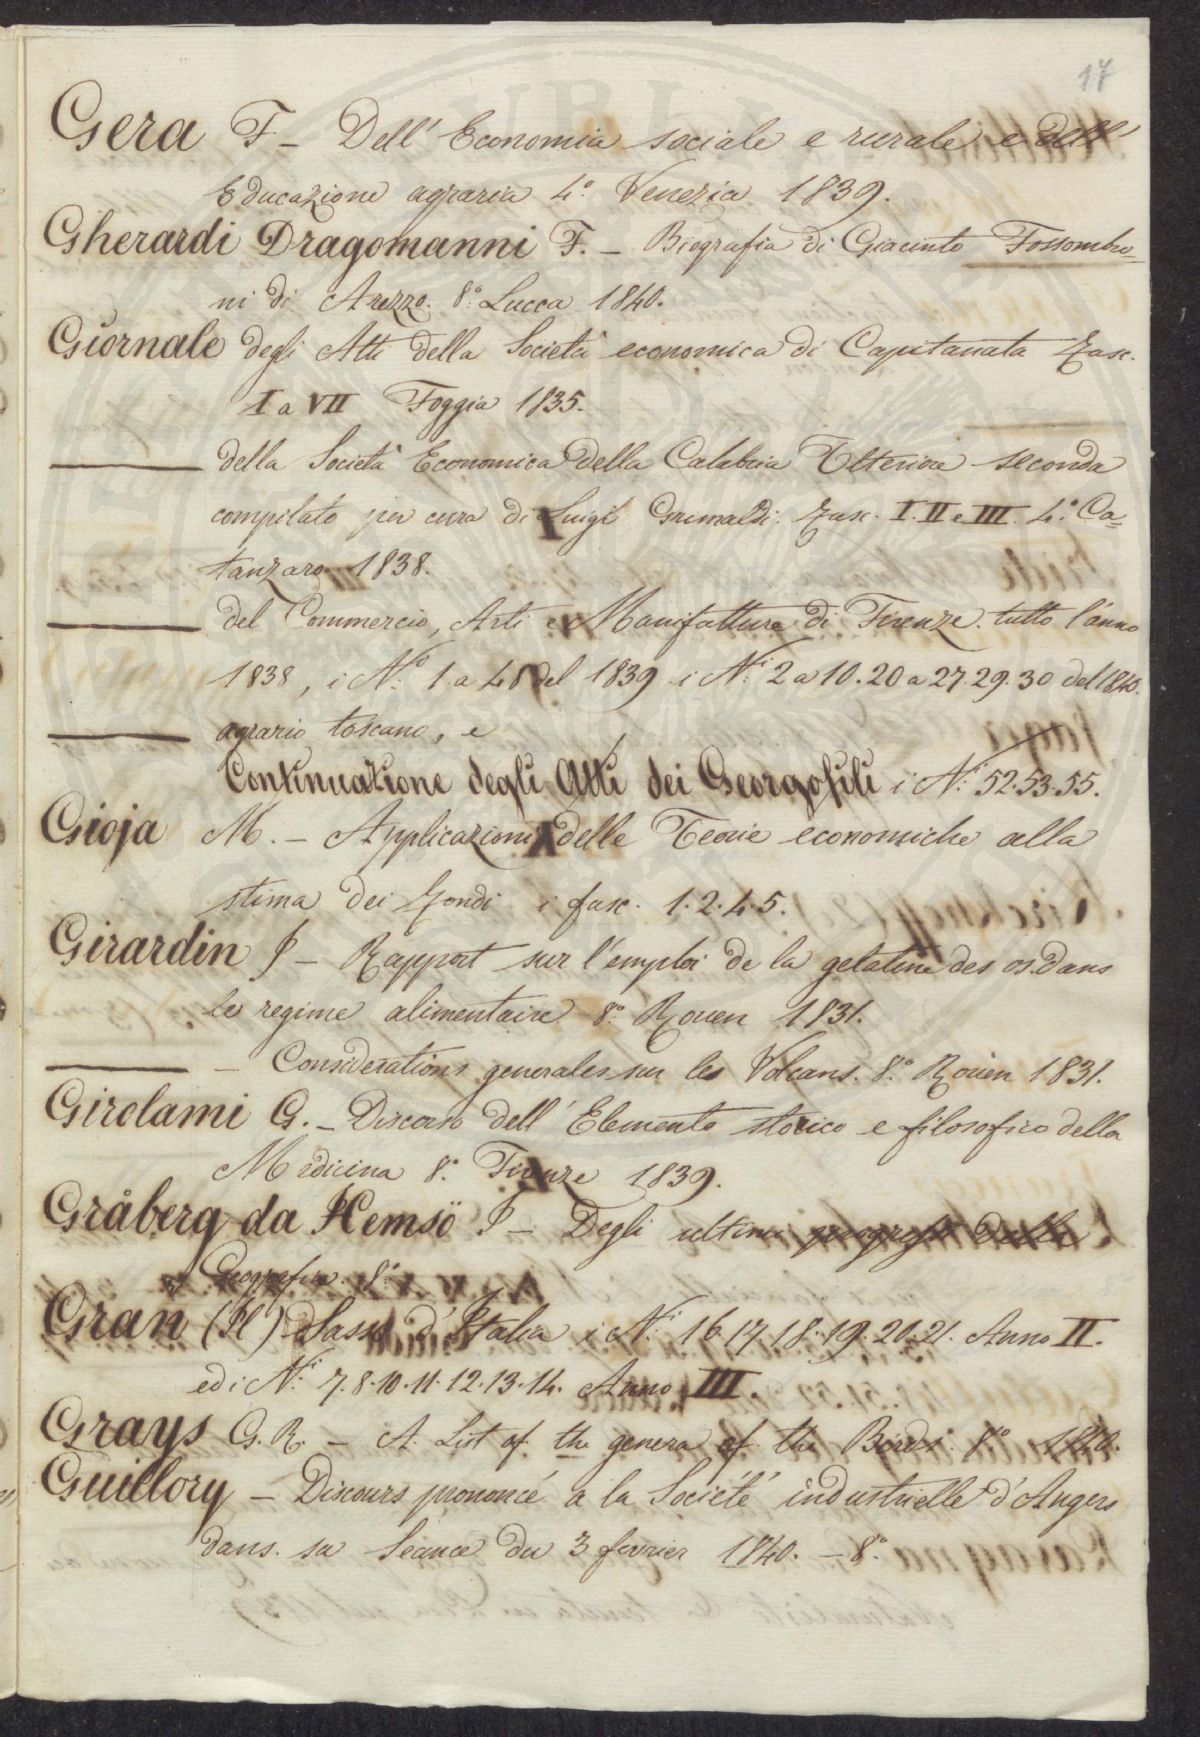 17
Gera F – Dell' Economia sociale e rurale e dell'
Educazione agraria 4.° Venezia 1839.
Gherardi Dragomanni F. – Biografia di Giacinto Fossombro=
ni di Arezzo. 8.° Lucca 1840.
Giornale degli Atti della Società economica di Capitanata Fasc.
I a VII Foggia 1835.
——— della Società Economica della Calabria Ulteriore seconda
compilato per cura di Luigi Grimaldi. Fasc. I. II e III. 4.° Ca=
tanzaro 1838.
——— del Commercio, Arti e Manifatture di Firenze. tutto l'anno
1838, i N.° 1 a 48 del 1839 i N.i 2 a 10. 20 a 27. 29. 30 del 1840.
——— agrario toscano, e
Continuazione degli Atti dei Georgofili i N.i 52. 53. 55.
Gioja M. – Applicazioni delle Teorie economiche alla
stima dei Fondi i fasc. 1. 2. 4. 5.
Girardin J – Rapport sur l'emploi de la gelatine des os dans
le regime alimentaire 8.° Rouen 1831.
——— – Considerations generales sur les Volcans. 8.° Rouen 1831.
Girolami G. – Discorso dell' Elemento storico e filosofico della
Medicina 8.° Firenze 1839.
Gråberg da Hemsö J – Degli ultimi progressi della
Geografia. 8.°
Gran (Il) Sasso d'Italia i N.i 16. 17. 18. 19. 20. 21. Anno II.
ed i N.i 7. 8. 10. 11. 12. 13. 14. Anno III.
Grays G. R. – A List of the genera of the Birds. 8.° 1840.
Guillory – Discours prononcé a la Société industrielle d'Angers
dans sa Séance du 3 fevrier 1840. – 8.°